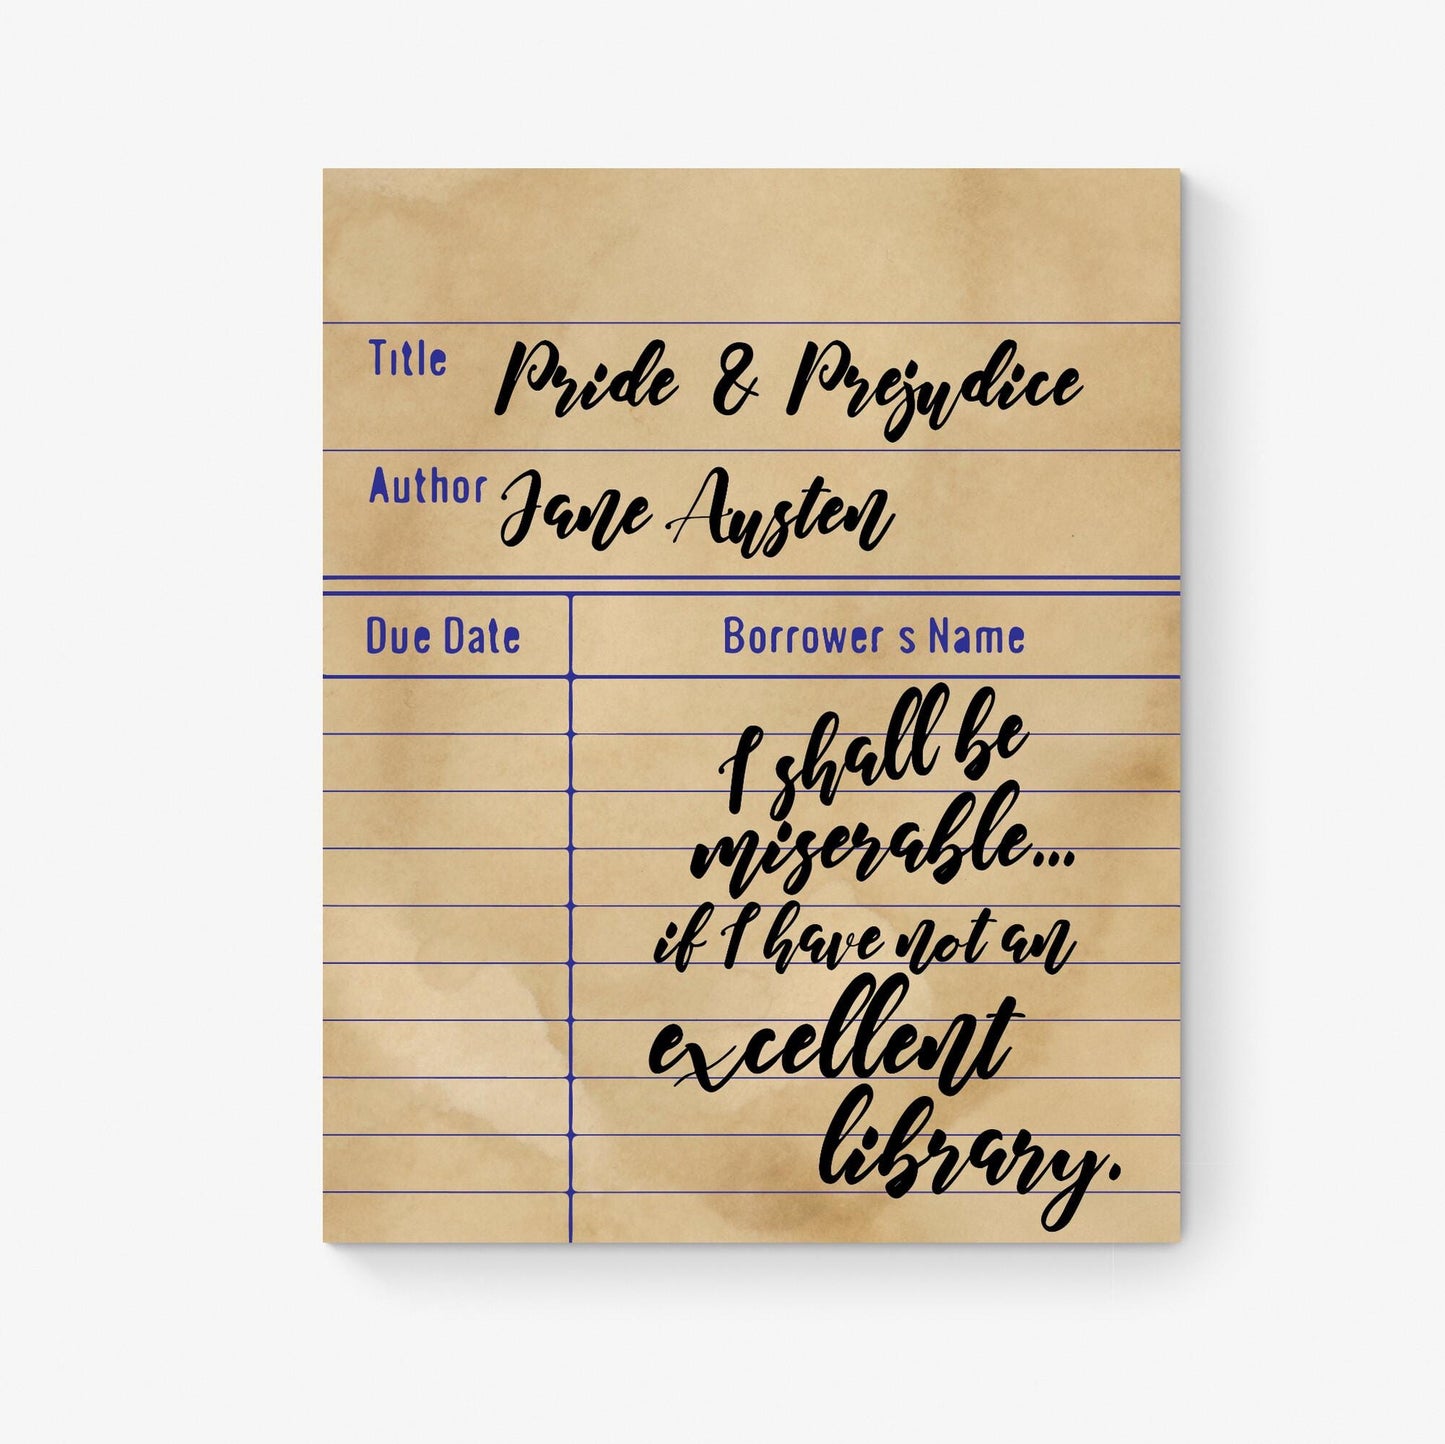 Title Pride & Prejudice
Author Jane Austen
Due Date Borrower s Name
I shall be
miserable...
if I have not an
excellent
library.